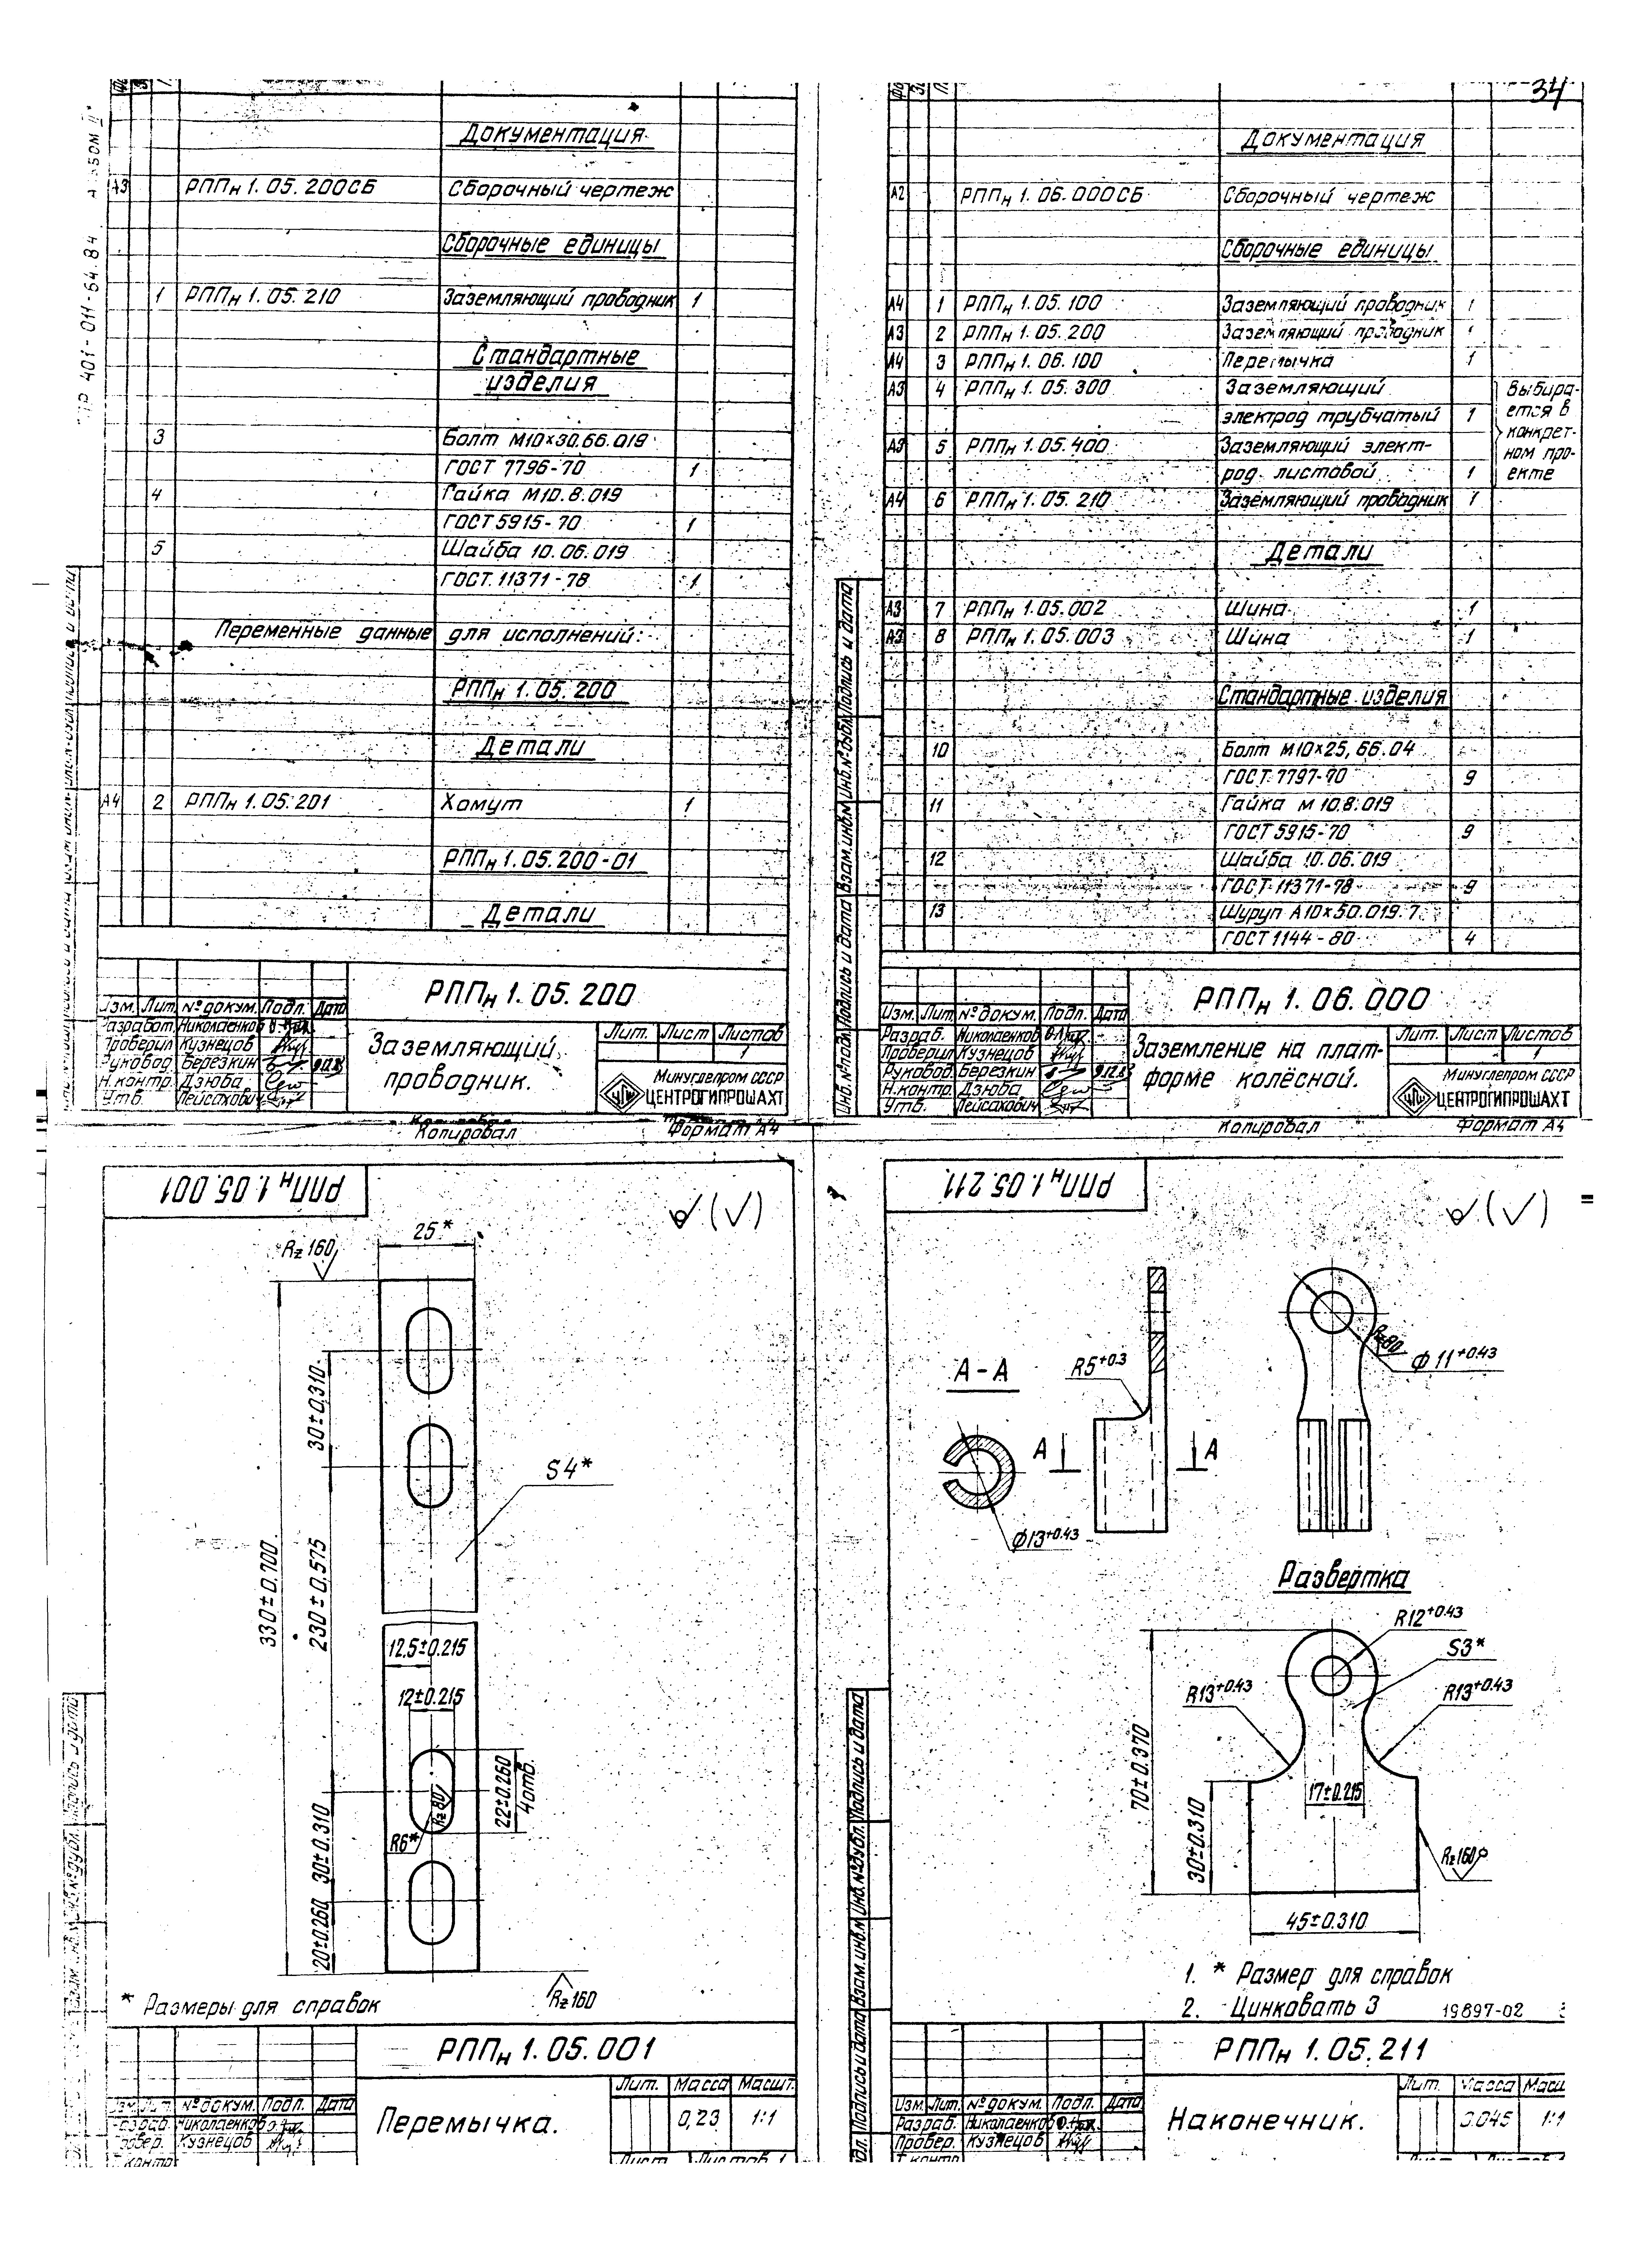 34
ТП 401-011-64.84 Альбом II
Документация
А3 РППн 1.05.200СБ Сборочный чертеж
Сборочные единицы
1 РППн 1.05.210 Заземляющий проводник 1
Стандартные
изделия
3 Болт М10×30.66.019
ГОСТ 7796-70 1
4 Гайка М10.8.019
ГОСТ 5915-70 1
5 Шайба 10.06.019
ГОСТ 11371-78 1
Переменные данные для исполнений:
РППн 1.05.200
Детали
А4 2 РППн 1.05.201 Хомут 1
РППн 1.05.200-01
Детали
РППн 1.05.200
Изм. Лит. № докум. Подп. Дата
Разработ. Николаенков
Проверил Кузнецов
Руковод. Березкин
Н.контр. Дзюба
Утв. Пейсахович
Заземляющий
проводник.
Лит. Лист Листов
1
Минуглепром СССР
ЦЕНТРОГИПРОШАХТ
Копировал Формат А4
Документация
А2 РППн 1.06.000СБ Сборочный чертеж
Сборочные единицы
А4 1 РППн 1.05.100 Заземляющий проводник 1
А3 2 РППн 1.05.200 Заземляющий проводник 1
А4 3 РППн 1.06.100 Перемычка 1
А3 4 РППн 1.05.300 Заземляющий
электрод трубчатый 1
А3 5 РППн 1.05.400 Заземляющий элект-
род листовой 1
Выбира-
ется в
конкрет-
ном про-
екте
А4 6 РППн 1.05.210 Заземляющий проводник 1
Детали
А3 7 РППн 1.05.002 Шина 1
А3 8 РППн 1.05.003 Шина 1
Стандартные изделия
10 Болт М10×25,66.04
ГОСТ 7797-70 9
11 Гайка М10.8.019
ГОСТ 5915-70 9
12 Шайба 10.06.019
ГОСТ 11371-78 9
13 Шуруп А10×50.019.7
ГОСТ 1144-80 4
Инв.№подл. Подпись и дата Взам.инв.№ Инв.№дубл. Подпись и дата
РППн 1.06.000
Изм. Лит. № докум. Подп. Дата
Разраб. Николаенков
Проверил Кузнецов
Руковод. Березкин
Н.контр. Дзюба
Утв. Пейсахович
Заземление на плат-
форме колёсной.
Лит. Лист Листов
1
Минуглепром СССР
ЦЕНТРОГИПРОШАХТ
Копировал Формат А4
РППн 1.05.001
√(√)
25*
Rz 160
30±0.310
S4*
330±0.700
230±0.575
12.5±0.215
12±0.215
22±0.260
4 отв.
R6*
Rz 80
30±0.310
20±0.260
Rz 160
* Размеры для справок
РППн 1.05.001
Изм. Лит. № докум. Подп. Дата
Разраб. Николаенков
Провер. Кузнецов
Т.контр.
Перемычка.
Лит. Масса Масшт.
0,23 1:1
Лист Листов 1
РППн 1.05.211
√(√)
А-А
R5+0.3
Rz80
Ф11+0.43
А А
Ф13+0.43
Развертка
R12+0.43
S3*
R13+0.43
R13+0.43
70±0.370
17±0.215
30±0.310
Rz160
45±0.310
1. * Размер для справок
2. Цинковать 3
19897-02
Подпись и дата Взам.инв.№ Инв.№дубл. Подпись и дата
РППн 1.05.211
Изм. Лит. № докум. Подп. Дата
Разраб. Николаенков
Провер. Кузнецов
Т.контр.
Наконечник.
Лит. Масса
0.045 1:1